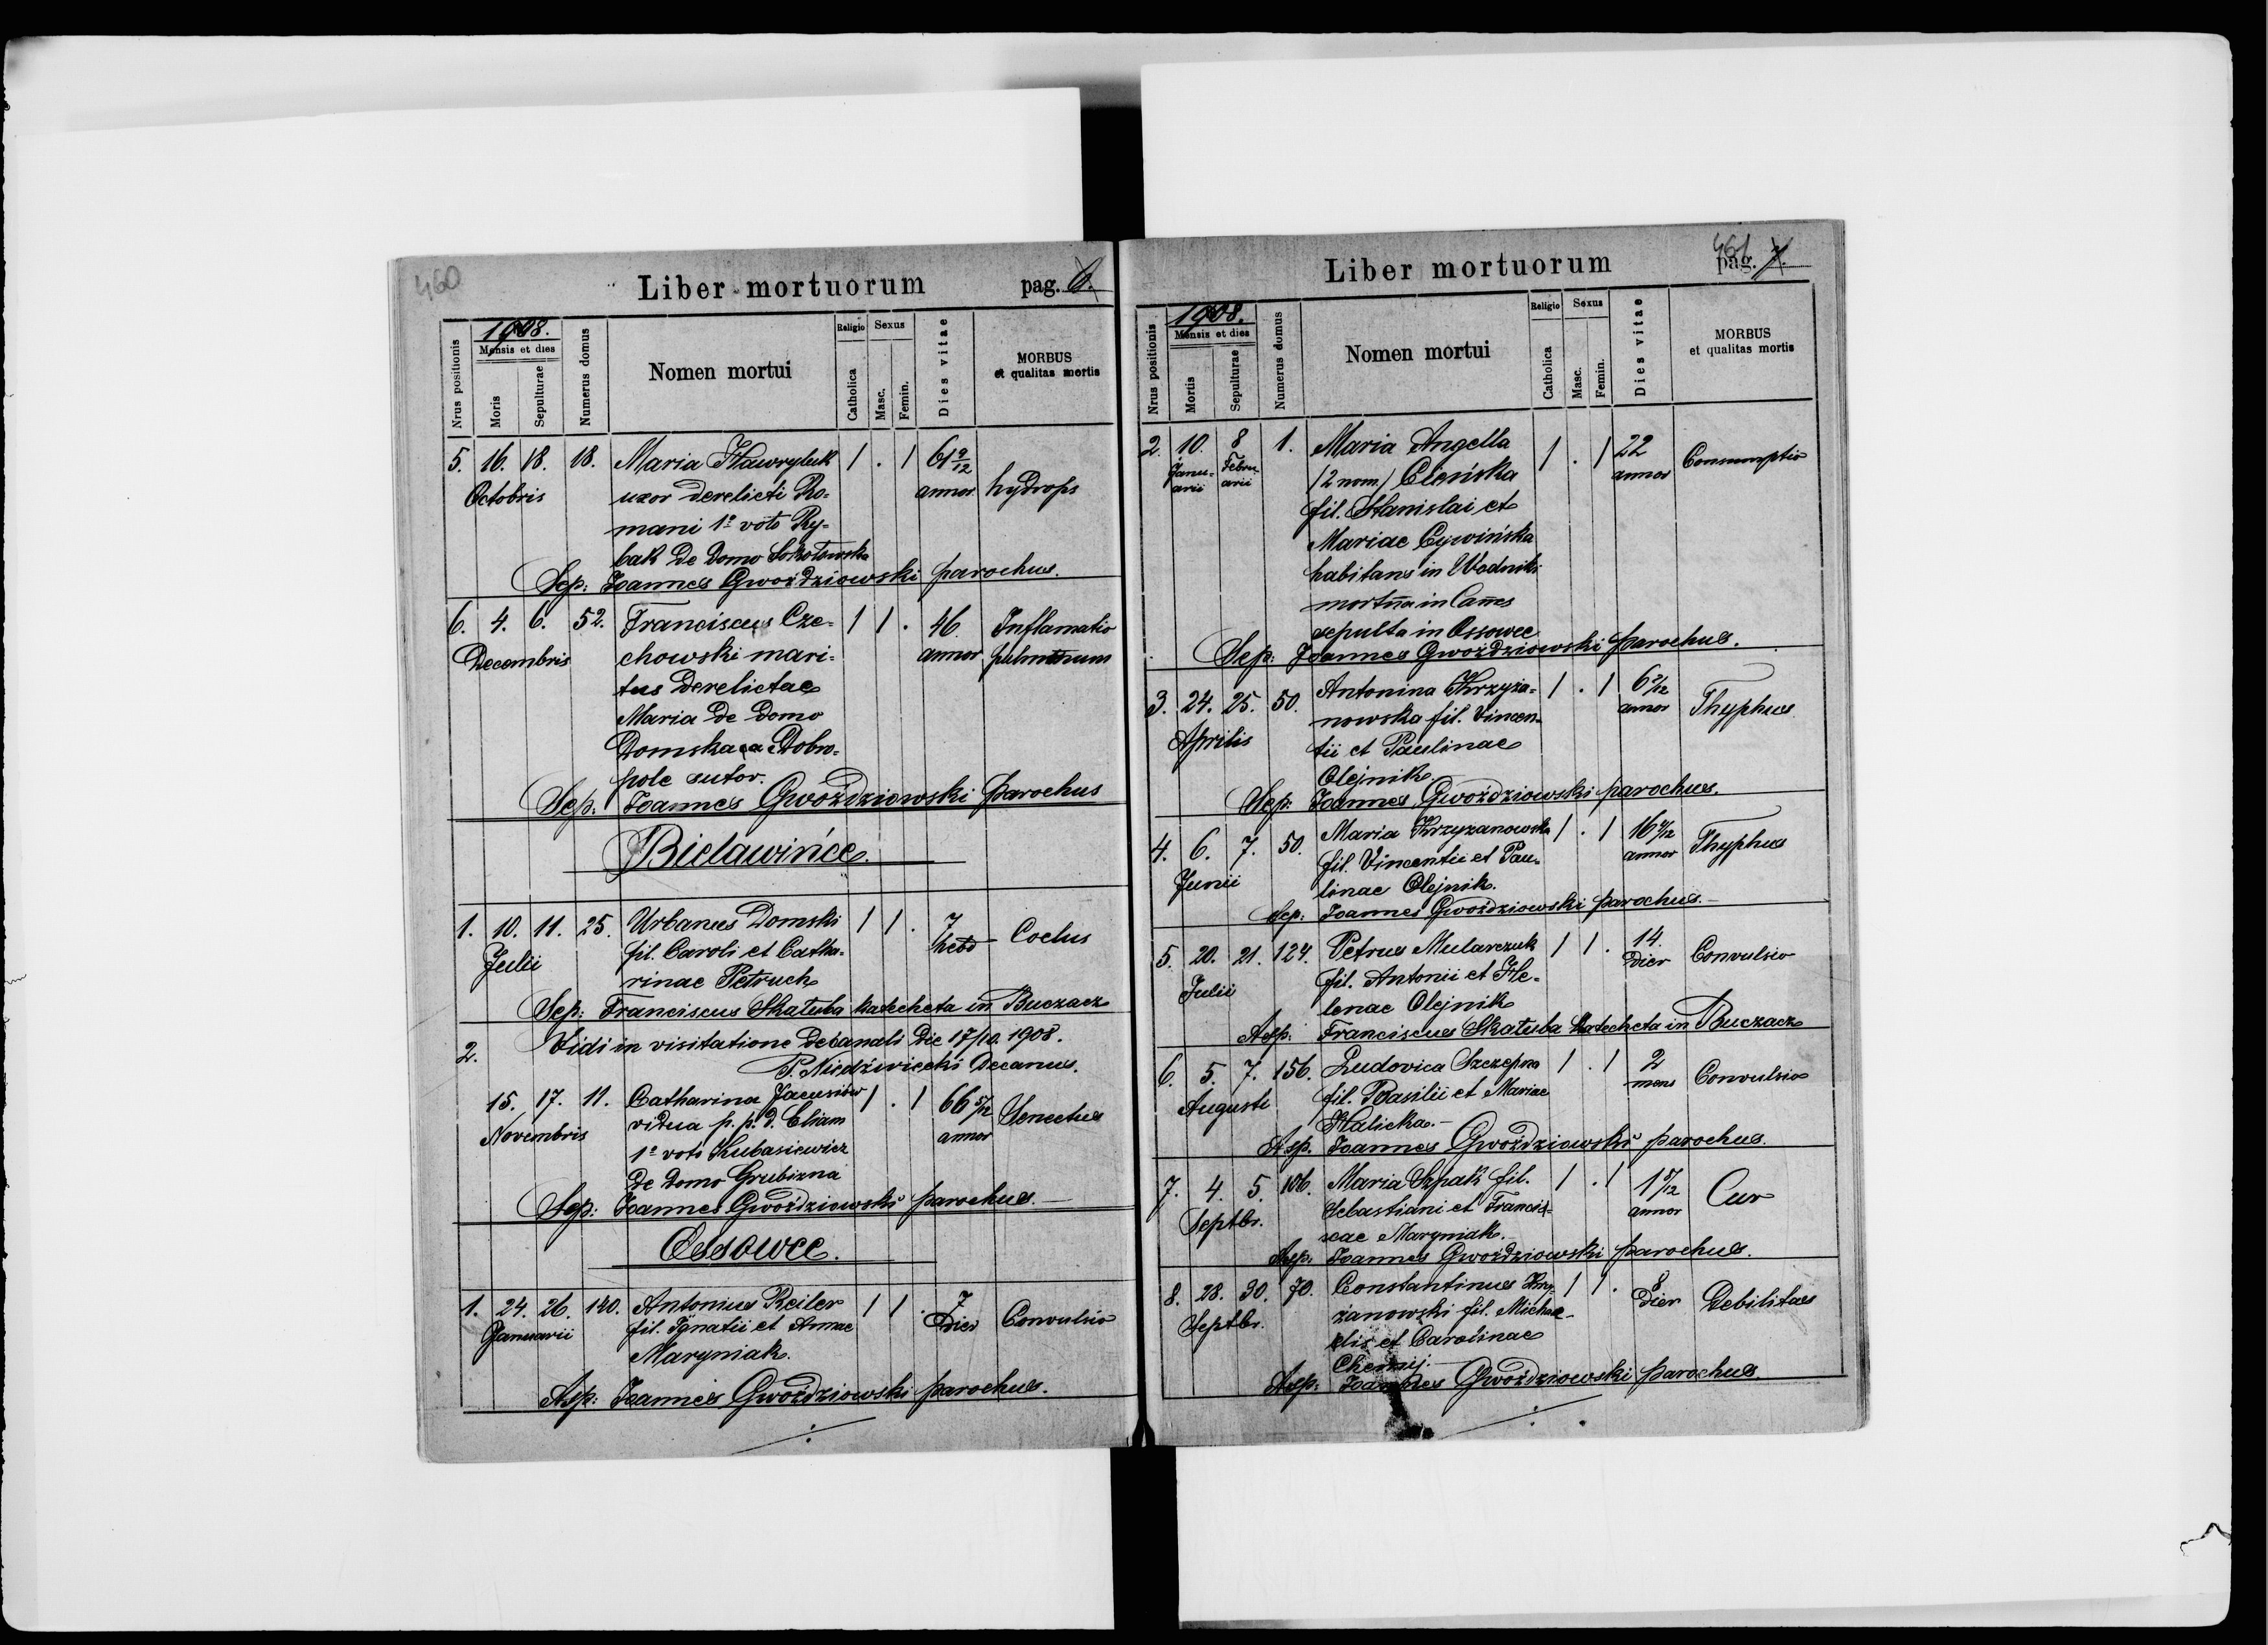 460
Liber mortuorum pag. 6.
1908.
Nrus positionis
Mensis et dies
Moris
Sepulturae
Numerus domus
Nomen mortui
Religio
Catholica
Sexus
Masc.
Femin.
Dies vitae
MORBUS
et qualitas mortis
5. 16. 18. 18. Maria Hawryluk 1 . 1 61 9/12
Octobris uxor derelicti Ro- annor hydrops
mani 1º voto Ry-
bak de domo Sokołowska
Sep: Joannes Gwoździowski parochus.
6. 4. 6. 52. Franciscus Cze- 1 1 . 46 Inflamatio
Decembris chowski mari- annor pulmonum
tus derelictae
Maria de domo
Domska a Dobro-
pole sutor.
Sep: Joannes Gwoździowski parochus
Bielawińce.
1. 10. 11. 25. Urbanus Domski 1 1 . 7 Coelus
Julii fil. Caroli et Catha- hebd
rinae Petruch
Sep: Franciscus Skałuba katecheta in Buczacz
2. Vidi in visitatione decanali die 17/10. 1908.
P. Niedźwiecki Decanus.
15. 17. 11. Catharina Jacusiów 1 . 1 66 5/12 Senectus
Novembris vidua p. p. d. Eliam annor
1º voto Kubasiewicz
de domo Grubizna
Sep: Joannes Gwoździowski parochus.
Ossowce.
1. 24. 26. 140. Antonius Reiler 1 1 . 7 Convulsio
Januarii fil. Ignatii et Annae dier
Maryniak.
Asp: Joannes Gwoździowski parochus.
461
Liber mortuorum pag. 7.
1908.
Nrus positionis
Mensis et dies
Mortis
Sepulturae
Numerus domus
Nomen mortui
Religio
Catholica
Sexus
Masc.
Femin.
Dies vitae
MORBUS
et qualitas mortis
2. 10. 8 1. Maria Angella 1 . 1 22 Consumptio
Janu- Febru- (2 nom.) Cleńska annor
arii arii fil. Stanislai et
Mariae Cywińska
habitans in Wodniki
mortua in Cannes
sepulta in Ossowce
Sep: Joannes Gwoździowski parochus.
3. 24. 25. 50. Antonina Krzyża- 1 . 1 6 7/12 Thyphus
Aprilis nowska fil. Vincen- annor
tii et Paulinae
Olejnik.
Sep: Joannes Gwoździowski parochus.
4. 6. 7. 50. Maria Krzyżanowska 1 . 1 16 4/12 Thyphus
Junii fil. Vincentii et Pau- annor
linae Olejnik.
Sep: Joannes Gwoździowski parochus.
5. 20. 21. 124. Petrus Mularczuk 1 1 . 14. Convulsio
Julii fil. Antonii et He- dier
lenae Olejnik
Asp: Franciscus Skałuba katecheta in Buczacz
6. 5. 7. 156. Ludovica Szczepna 1 . 1 2 Convulsio
Augusti fil. Basilii et Mariae mens
Halicka.
Asp. Joannes Gwoździowski parochus.
7. 4. 5. 106. Maria Szpak fil. 1 . 1 1 5/12 Cur
Septbr. Sebastiani et Francis- annor
cae Maryniak.
Asp: Joannes Gwoździowski parochus.
8. 28. 30. 70. Constantinus Krzy- 1 1 . 8 Debilitas
Septbr. żanowski fil. Michae- dier
elis et Carolinae
Chemij.
Asp: Joannes Gwoździowski parochus.